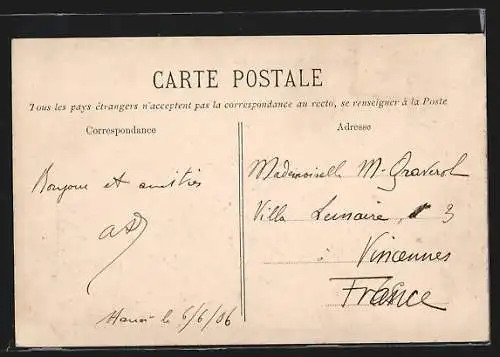 CARTE POSTALE
Tous les pays étrangers n'acceptent pas la correspondance au recto, se renseigner à la Poste
Correspondance
Adresse
Bonjour et amitiés
Hanoi le 5/6/06
Mademoiselle M. Graverol
Villa Lemaire, 3
à Vincennes
France